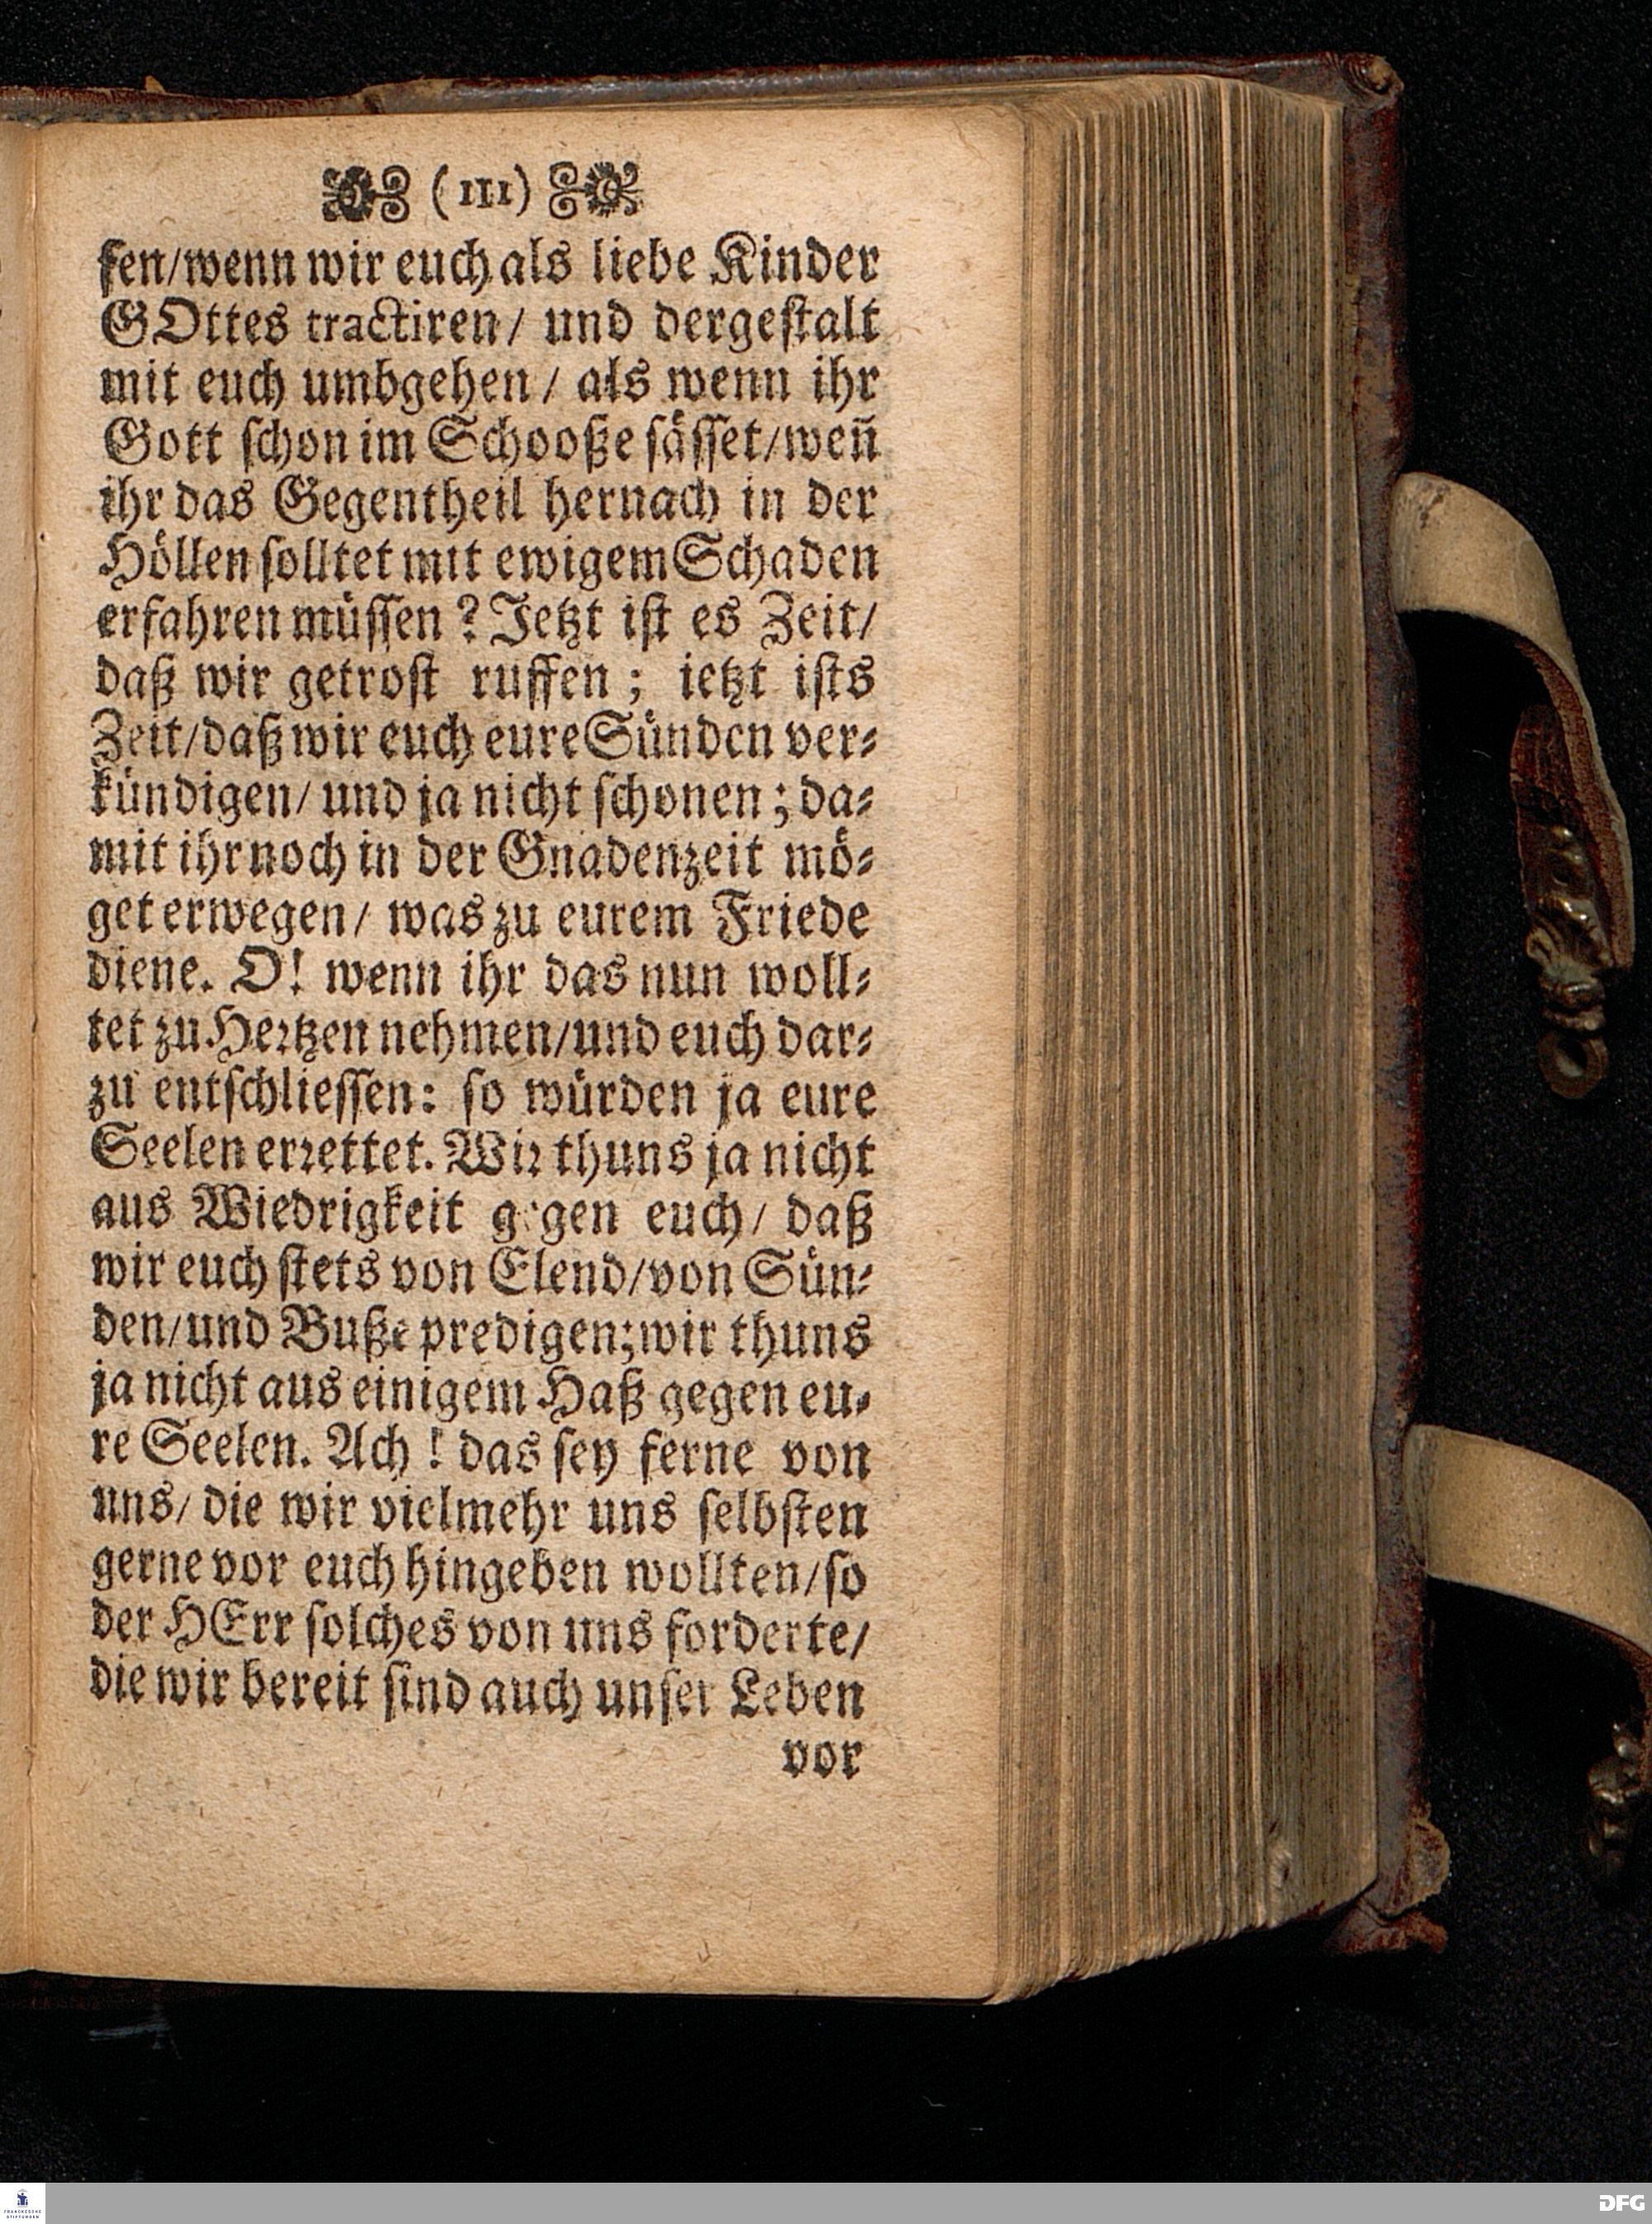 (111)
fen/wenn wir euch als liebe Kinder
GOttes tractiren/ und dergestalt
mit euch umbgehen/ als wenn ihr
Gott schon im Schooße sässet/weñ
ihr das Gegentheil hernach in der
Höllen solltet mit ewigem Schaden
erfahren müssen? Jetzt ist es Zeit/
daß wir getrost ruffen; ietzt ists
Zeit/daß wir euch eure Sünden ver-
kündigen/ und ja nicht schonen; da-
mit ihr noch in der Gnadenzeit mö-
get erwegen/ was zu eurem Friede
diene. O! wenn ihr das nun woll-
tet zu Hertzen nehmen/und euch dar-
zu entschliessen: so würden ja eure
Seelen errettet. Wir thuns ja nicht
aus Wiedrigkeit gegen euch/ daß
wir euch stets von Elend/von Sün-
den/und Buße predigen; wir thuns
ja nicht aus einigem Haß gegen eu-
re Seelen. Ach! das sey ferne von
uns/ die wir vielmehr uns selbsten
gerne vor euch hingeben wollten/so
der HErr solches von uns forderte/
die wir bereit sind auch unser Leben
vor
FRANCKESCHE
STIFTUNGEN
DFG